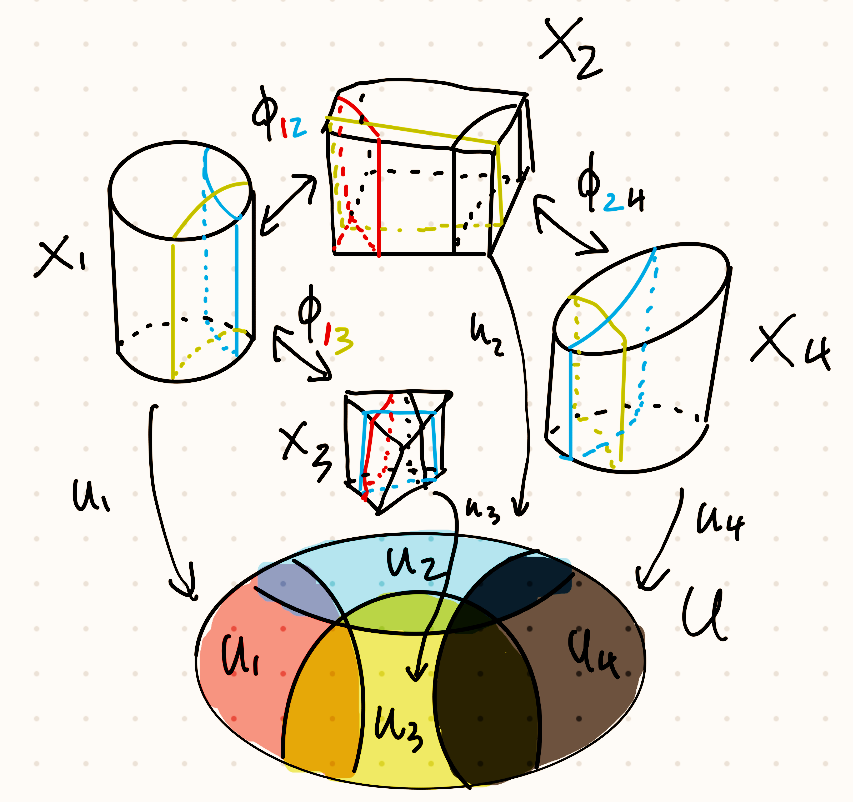 X₂
ϕ₁₂
ϕ₂₄
X₁
ϕ₁₃
u₂
X₄
X₃
u₁
u₃
u₄
U₂
U
U₁
U₄
U₃